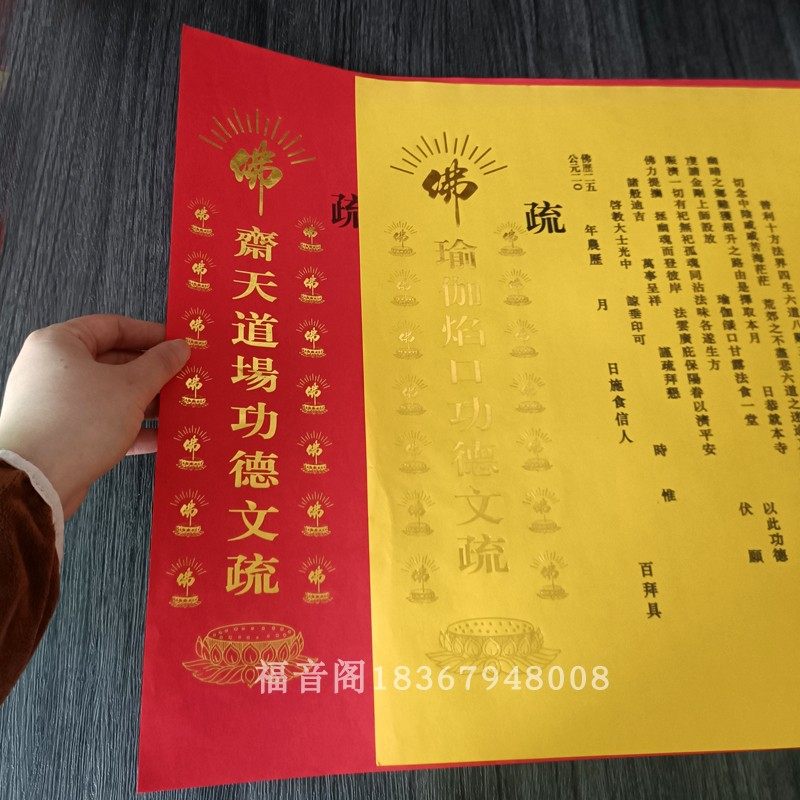 善利十方法界四生六道八
切念中陰戚戚苦海茫茫 荒郊之不盡悲六道之迷途
幽暗之鄉難獲超升之路由是擇取本月 日恭就本寺
虔請金剛上師設放 瑜伽燄口甘露法食一堂
以此功德
伏願
賑濟一切有祀無祀孤魂同沾法味各遂生方
佛力提攜 拯幽魂而登彼岸 法雲廣庇保陽眷以濟平安
諸般迪吉 萬事呈祥 謹疏拜懇 時惟
啓教大士光中 諒垂印可
百拜具
佛歷二五
公元二〇
年農歷 月 日施食信人
疏
佛
瑜伽焰口功德文疏
佛
佛
佛
佛
佛
佛
佛
佛
佛
佛
佛
佛
疏
佛
齋天道場功德文疏
佛
佛
佛
佛
佛
佛
佛
佛
佛
佛
佛
佛
福音阁18367948008